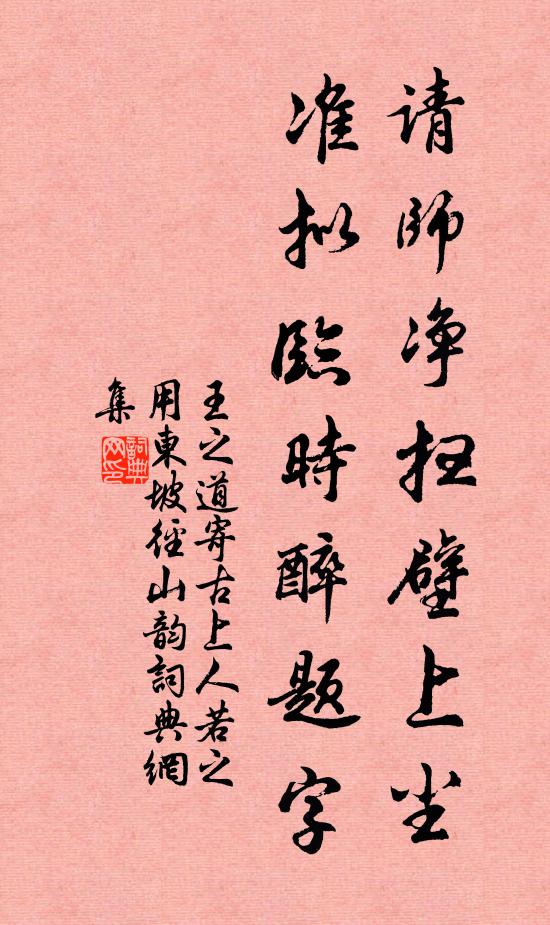 请師净扫壁上尘
准拟臨時醉题字
王之道寄古上人若之
用東坡徑山韵詞典網
集
詞典
网印